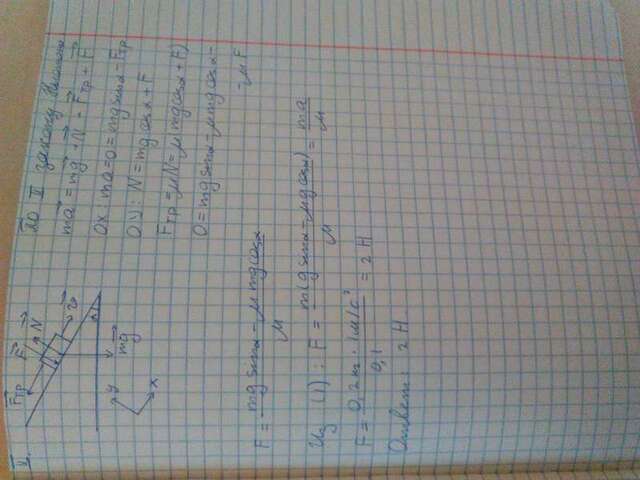 II.
Fтр F N
v
α
mg
y
x
По II закону Ньютона
ma = mg + N + Fтр + F
OX: ma=0=mgsinα-Fтр
OY: N=mgcosα+F
Fтр=μN=μ(mgcosα+F)
0=mgsinα-μmgcosα-
-μF
F = (mgsinα-μmgcosα)/μ
Из (1): F = m(gsinα-μgcosα)/μ = ma/μ
F = (0,2кг · 1м/с²)/0,1 = 2 Н
Ответ: 2 Н.